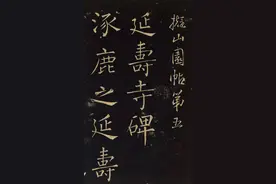 擬山園帖第五
延壽寺碑
涿鹿之延壽